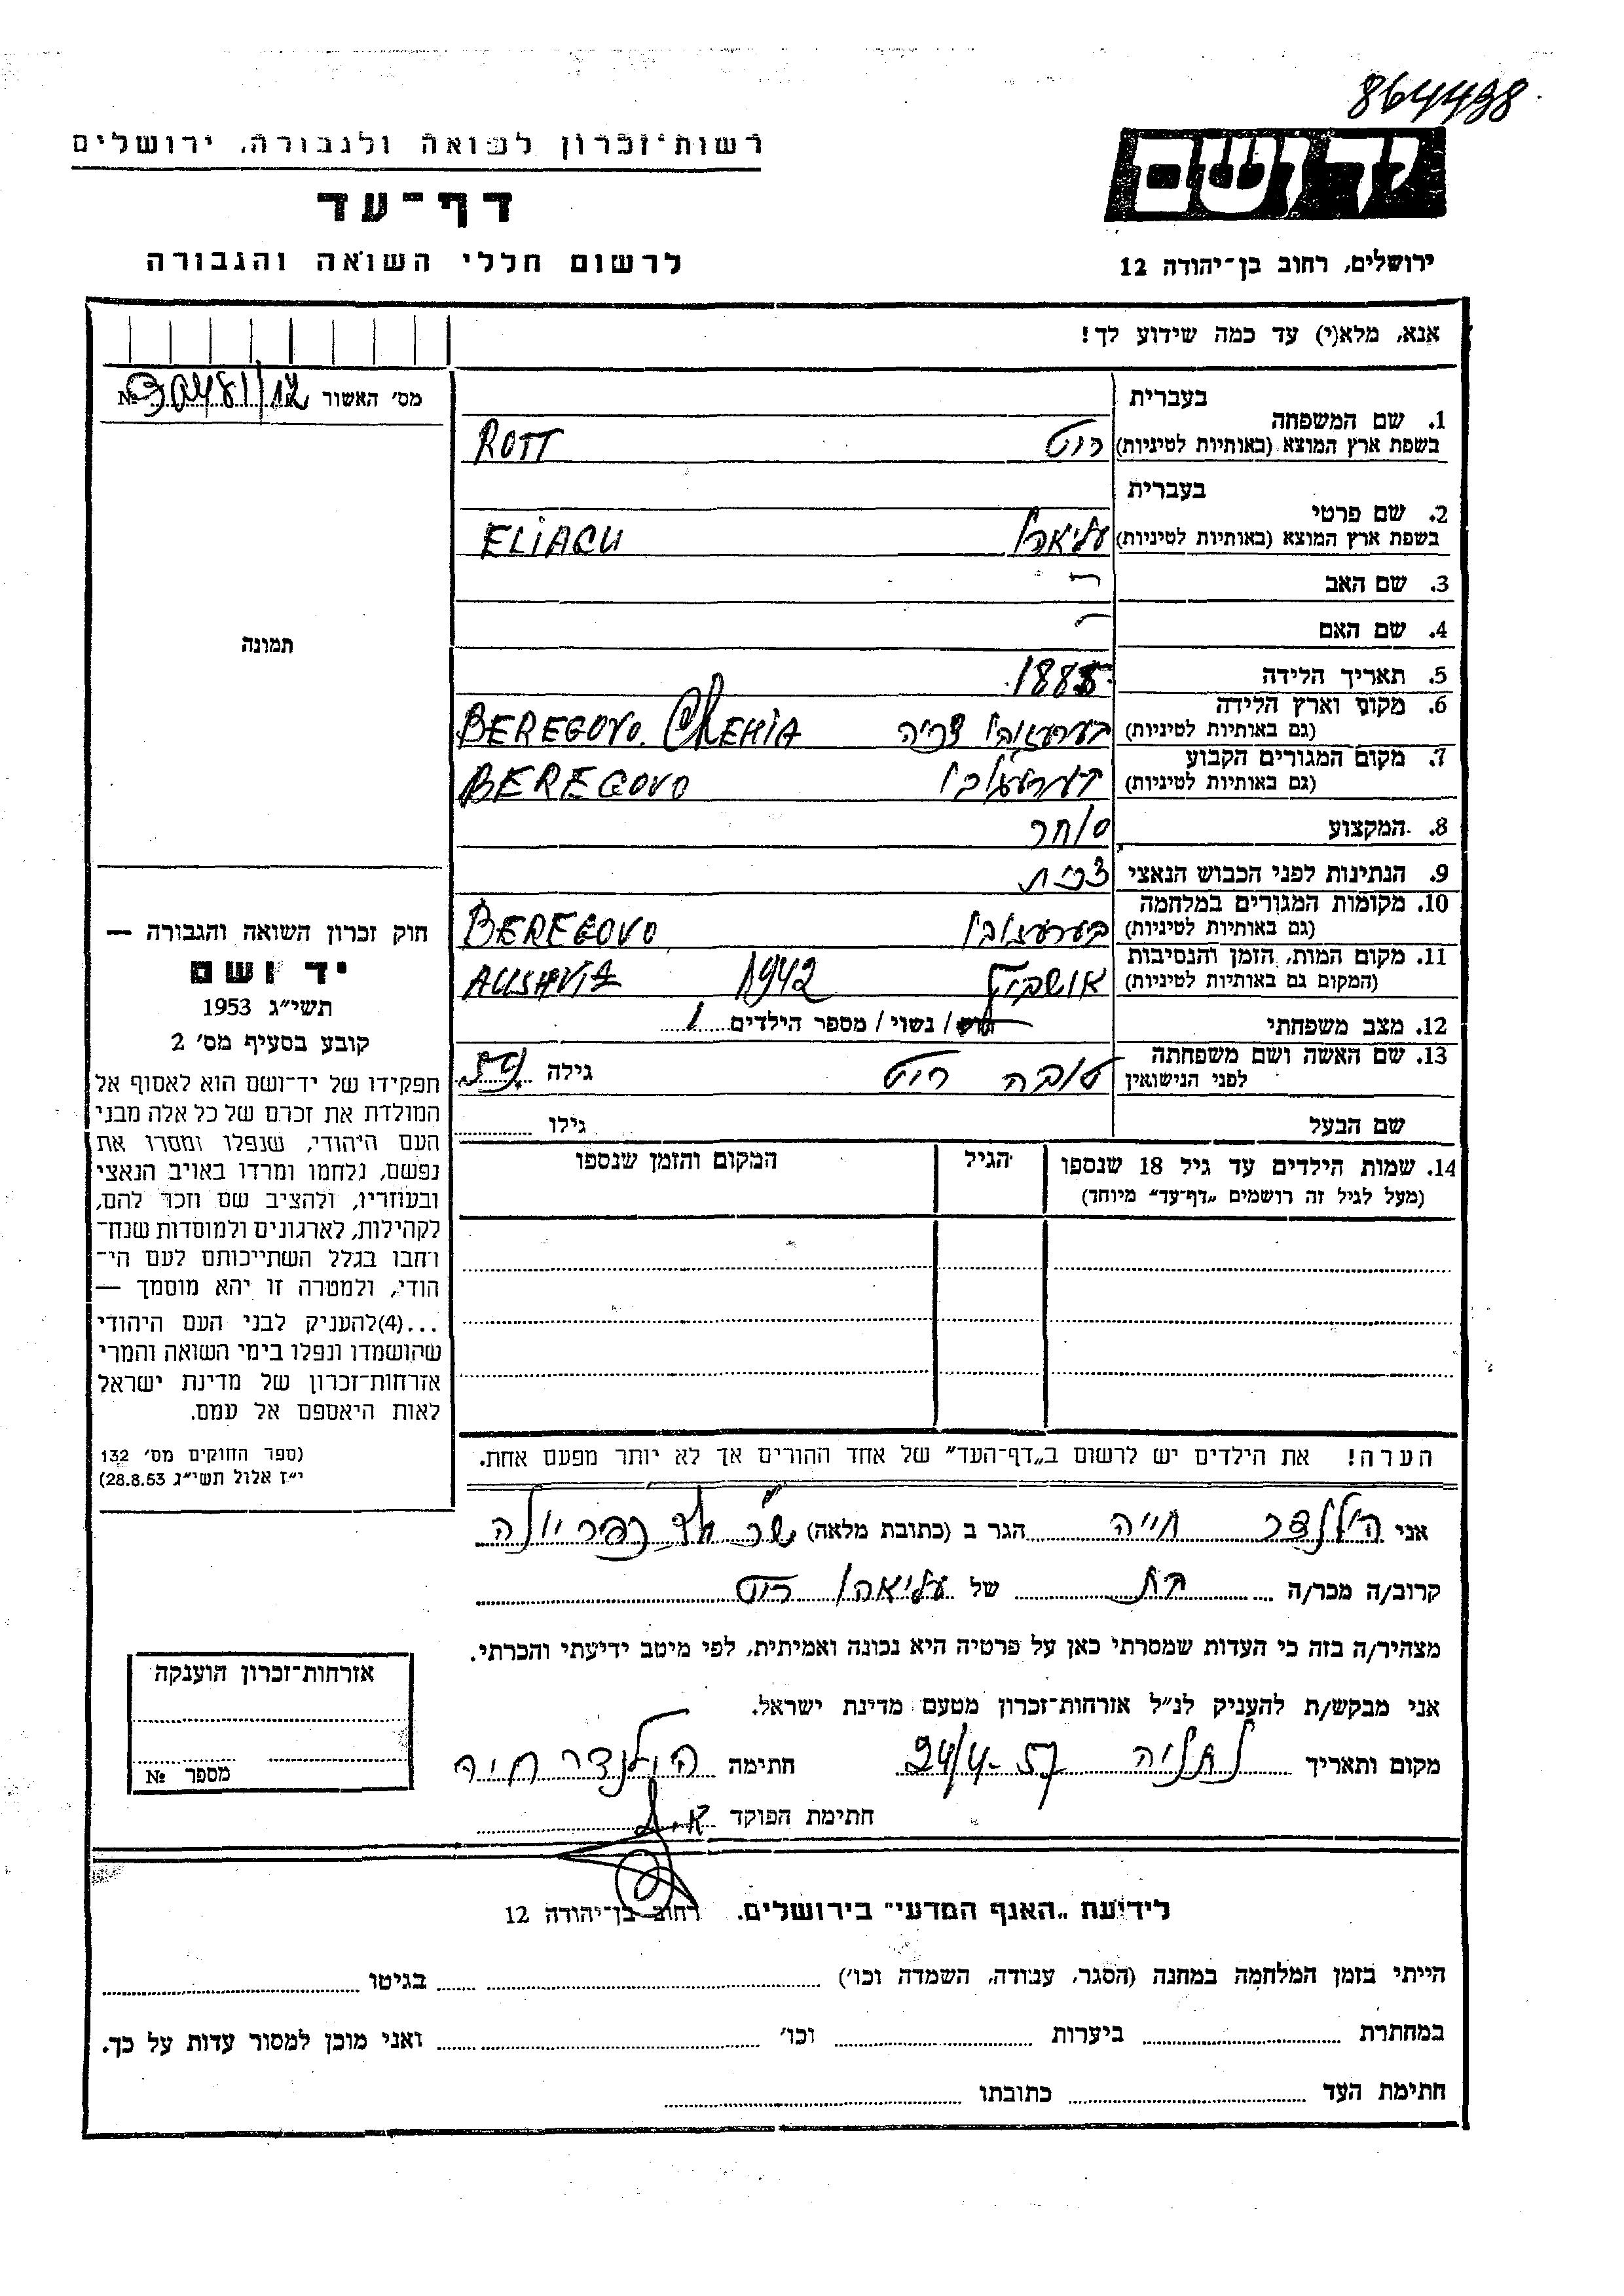 864498
רשות־זכרון לשואה ולגבורה, ירושלים
דף־עד
לרשום חללי השואה והגבורה
יד ושם
ירושלים, רחוב בן־יהודה 12
אנא, מלא(י) עד כמה שידוע לך!
מס׳ האשור № 30481/12
תמונה
בעברית
1. שם המשפחה
בשפת ארץ המוצא (באותיות לטיניות) רוט ROTT
בעברית
2. שם פרטי
בשפת ארץ המוצא (באותיות לטיניות) עליאהו ELIACU
3. שם האב -
4. שם האם -
5. תאריך הלידה 1885
6. מקום וארץ הלידה
(גם באותיות לטיניות) בערעגובו צכיה BEREGOVO. CHEHIA
7. מקום המגורים הקבוע
(גם באותיות לטיניות) בערעגובו BEREGOVO
8. המקצוע סוחר
9. הנתינות לפני הכבוש הנאצי צכית
10. מקומות המגורים במלחמה
(גם באותיות לטיניות) בערעגובו BEREGOVO
11. מקום המות, הזמן והנסיבות
(המקום גם באותיות לטיניות) אושביץ 1942 AUSHVIZ
12. מצב משפחתי רווק / נשוי / מספר הילדים 1
13. שם האשה ושם משפחתה
לפני הנישואין טובה רוט גילה 54
שם הבעל גילו
14. שמות הילדים עד גיל 18 שנספו
(מעל לגיל זה רושמים „דף־עד״ מיוחד)
הגיל
המקום והזמן שנספו
הערה! את הילדים יש לרשום ב„דף־העד״ של אחד ההורים אך לא יותר מפעם אחת.
חוק זכרון השואה והגבורה —
יד ושם
תשי״ג 1953
קובע בסעיף מס׳ 2
תפקידו של יד־ושם הוא לאסוף אל
המולדת את זכרם של כל אלה מבני
העם היהודי, שנפלו ומסרו את
נפשם, נלחמו ומרדו באויב הנאצי
ובעוזריו, ולהציב שם וזכר להם,
לקהילות, לארגונים ולמוסדות שנח־
רחבו בגלל השתייכותם לעם הי־
הודי, ולמטרה זו יהא מוסמך —
...(4)להעניק לבני העם היהודי
שהושמדו ונפלו בימי השואה והמרי
אזרחות־זכרון של מדינת ישראל
לאות היאספם אל עמם.
(ספר החוקים מס׳ 132
י״ז אלול תשי״ג 28.8.53)
אני הולנדר חייה הגר ב (כתובת מלאה)
קרוב/ה מכר/ה בת של עליאהו רוט
מצהיר/ה בזה כי העדות שמסרתי כאן על פרטיה היא נכונה ואמיתית, לפי מיטב ידיעתי והכרתי.
אני מבקש/ת להעניק לנ״ל אזרחות־זכרון מטעם מדינת ישראל.
מקום ותאריך נתניה 24/4-57 חתימה הולנדר חיה
חתימת הפוקד
אזרחות־זכרון הוענקה
מספר №
לידיעת „האגף המדעי״ בירושלים. רחוב בן־יהודה 12
הייתי בזמן המלחמה במחנה (הסגר, עבודה, השמדה וכו׳) בגיטו
במחתרת ביערות וכו׳ ואני מוכן למסור עדות על כך.
חתימת העד כתובתו